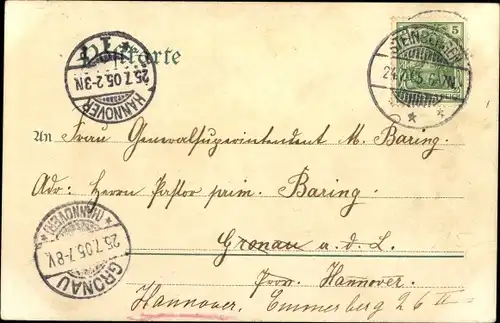 Postkarte
HANNOVER
25.7.05.2-3N
5
24.7.05
An Frau Generalsuperintendent M. Baring.
Adr: Herrn Pastor prim. Baring
Gronau a. d. L.
Prov. Hannover.
Hannover, Emmerberg 26
GRONAU (HANNOVER)
25.7.05.7-8V.